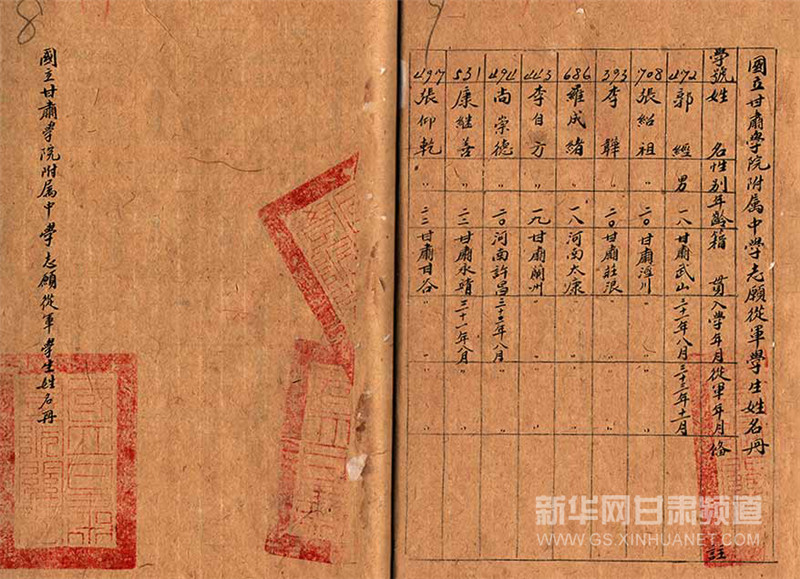 國立甘肅學院附属中學志願從軍學生姓名冊
學號 姓名 性別 年齡 籍貫 入學年月 從軍年月 俻註
472 郭經 男 一八 甘肅武山 三十二年八月 三十三年十一月
708 張紹祖 〃 二〇 甘肅涇川 〃 〃
393 李韡 〃 二〇 甘肅莊浪 〃 〃
686 羅成緒 〃 一八 河南太康 〃 〃
443 李自方 〃 一九 甘肅蘭州 〃 〃
494 尚崇德 〃 二〇 河南許昌 三十三年八月 〃
531 康繼善 〃 二三 甘肅永靖 三十一年八月 〃
497 張仰乾 〃 二二 甘肅甘谷 〃 〃
國立甘肅學院附属中學志願從軍學生姓名冊
8
新华网甘肃频道
WWW.GS.XINHUANET.COM